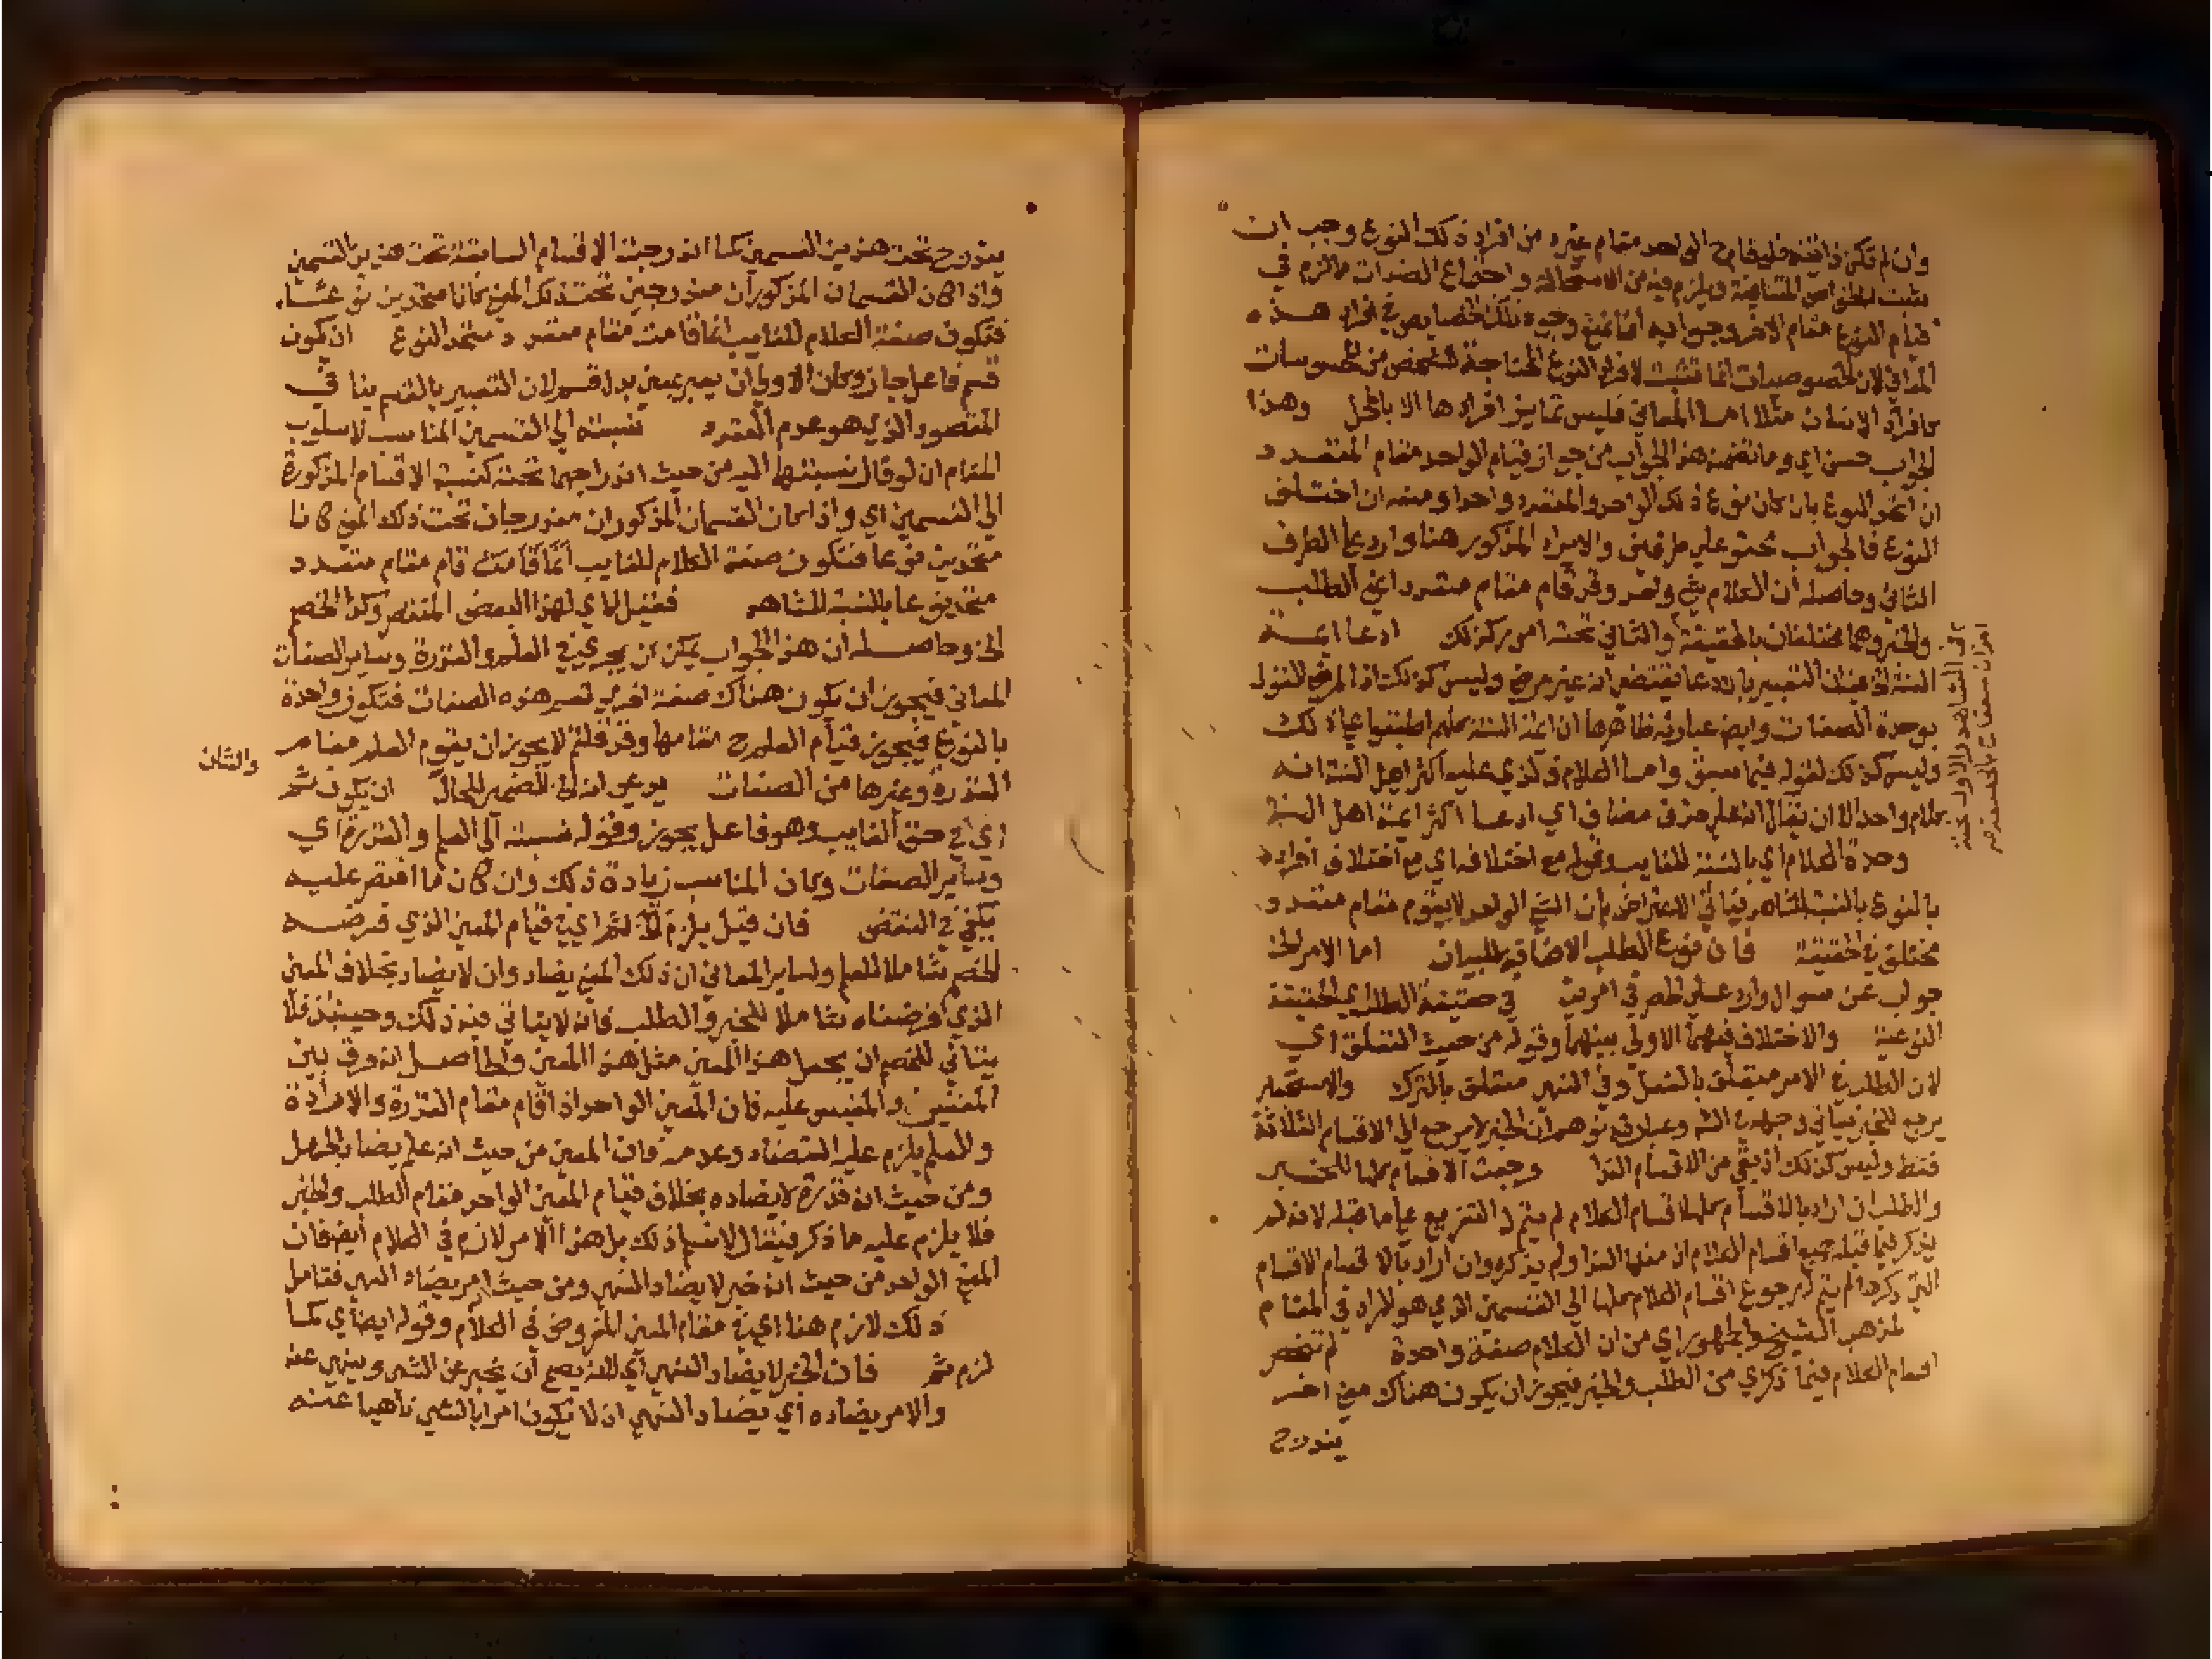 وان لم تكن ذاتية فلو قام الواحد مقام غيره من افراد ذلك النوع وجب ان
تثبت الخواص المتنافية ويلزم فيه من الاستحالة واجتماع الضدات ما لزم في
قيام النوع مقام الاخر وجوابه انا نمنع وجود تلك الخصايص في افراد هذه
المعاني لان الخصوصيات انما تثبت لافراد النوع المحتاجة للتشخص من المحسوسات
كافراد الانسان مثلا اما المعاني فليس تمايز افرادها الا بالمحل وهذا
الجواب حسن اي وما تضمنه هذا الجواب من جواز قيام الواحد مقام المتعدد
ان اتحد النوع بان كان نوع ذلك الواحد والمتعدد واحدا ومنعه ان اختلف
النوع فالجواب محتو على طرفين والايراد المذكور هنا وارد على الطرف
الثاني وحاصله ان الكلام شي واحد وقد قام مقام متعدد اعني الطلب
والخبر وهما مختلفان بالحقيقة والثاني تحته امور كذلك ادعا ايمة
السنة الخ فيه ان التعبير بالادعا يقتضي انه غير مرضي وليس كذلك اذ المرضي القول
بوحدة الصفات وايضا عبارته ظاهرها ان ايمة السنة كلهم اطبقوا على ذلك
وليس كذلك لقوله فيما سبق واما الكلام فالذي عليه اكثر اهل السنة انه
كلام واحد الا ان يقال انه على حذف مضاف اي ادعا اكثر ايمة اهل السنة
وحدة الكلام اي بالنسبة للغايب وقوله مع اختلافه اي مع اختلاف افراده
بالنوع بالنسبة للشاهد فياتي الاعتراض بان الشي الواحد لا يقوم مقام متعدد
مختلف في الحقيقة فان نوع الطلب الاضافة للبيان اما الامر الخ
جواب عن سوال وارد على الحصر في امرين في حقيقة الطلب اي الحقيقة
النوعية والاختلاف فيهما الاولي بينهما وقوله من حيث التعلق اي
لان الطلب في الامر متعلق بالفعل وفي النهي متعلق بالترك والاستخبار
يرجع للخبر ياتي وجهه في الشرح وعبارته توهم ان الخبر لا يرجع الي الاقسام الثلاثة
فقط وليس كذلك اذ بقي من الاقسام الندا وجبت الاقسام كلها للخبر
والطلب ان اراد بالاقسام كلها اقسام الكلام لم يتم له التفريع على ما قبله لانه لم
يذكر فيما قبله جميع اقسام الكلام اذ منها الندا ولم يذكره وان اراد بالاقسام الاقسام
التي ذكرها لم يتم له رجوع اقسام الكلام كلها الي القسمين الذي هو المراد في المقام
لمذهب الشيخ والجمهور اي من ان الكلام صفة واحدة لم تنحصر
اقسام الكلام فيما ذكر اي من الطلب والخبر فيجوز ان يكون هناك معني اخر
يندرج
يندرج تحت هذين القسمين كما اندرجت الاقسام السابقة تحت هذين القسمين
واذا كان القسمان المذكوران مندرجين تحت ذلك المعني كانا متحدين نوعا
فتكون صفة الكلام للغايب انما قامت مقام متعدد متحد النوع ان يكون
قسم فاعل جاز وكان الاولي ان يعبر بمعني بدل قسم لان التعبير بالقسم ينافي
المقصود الذي هو عدم التعدد نسبته الي القسمين المناسب لاسلوب
المقام ان لو قال نسبتهما اليه من حيث اندراجهما تحته كنسبة الاقسام المذكورة
الي القسمين اي واذا كان القسمان المذكوران مندرجان تحت ذلك المعني كانا
متحدين نوعا فتكون صفة الكلام للغايب انما قامت قام مقام متعدد
متحد نوعا بالنسبة للشاهد فقيل لا اي لهذا البعض المنتصر وكذا الخصم
الخ وحاصله ان هذا الجواب يمكن ان يجري في العلم والقدرة وساير الصفات
المعاني فيجوز ان يكون هناك صفة اخري تعم هذه الصفات فتكون واحدة
بالنوع فيجوز قيام العلم ح مقامها وقد قلتم لا يجوز ان يقوم العلم مقام
القدرة وغيرها من الصفات ان يكون ثم
اي في حق الغايب وهو فاعل يجوز وقوله نسبته الي العلم والقدرة اي
وساير الصفات وكان المناسب زيادة ذلك وان كان ما اقتصر عليه
يكفي في النقض فان قيل يلزم ثم اي في قيام المعني الذي فرضه
الخصم شاملا للعلم ولساير المعاني ان ذلك المعني يضاد وان لا يضاد بخلاف المعني
الذي فرضناه شاملا للخبر والطلب فانه لا ياتي فيه ذلك وحينيذ فلا
يتاتي للخصم ان يجعل هذا المعني مثل هذا المعني والحاصل انه فرق بين
المقيس والمقيس عليه فان المعني الواحد اذا قام مقام القدرة والارادة
والعلم يلزم عليه التضاد وعدمه فان المعني من حيث انه علم يضاد الجهل
ومن حيث انه قدرة لا يضاده بخلاف قيام المعني الواحد مقام الطلب والخبر
فلا يلزم عليه ما ذكر فيقال لا نسلم ذلك بل هذا الامر لازم في الكلام ايضا فان
المعني الواحد من حيث انه خبر لا يضاد النهي ومن حيث امر يضاد النهي فتامل
ذلك لازم هنا اي في مقام المعني المفروض في الكلام وقوله ايضا اي كما
لزم ثم فان الخبر لا يضاد النهي اي لانه يصح ان يخبر عن الشي وينهي عنه
والامر يضاده اي يضاد النهي اذ لا يكون امرا بالشي ناهيا عنه